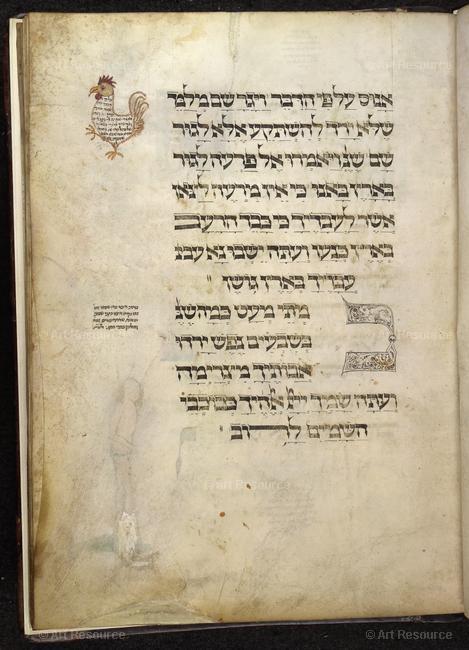 אנוס על פי הדבר ויגר שם מלמד
שלא ירד להשתקע אלא לגור
שם שנ' ויאמרו אל פרעה לגור
בארץ באנו כי אין מרעה לצאן
אשר לעבדיך כי כבד הרעב
בארץ כנען ועתה ישבו נא
עבדיך בארץ גושן
במתי מעט כמה שנ'
בשבעים נפש ירדו
אבותיך מצרימה
ועתה שמך יי אלהיך ככוכבי
השמים לרוב
© Art Resource
© Art Resource